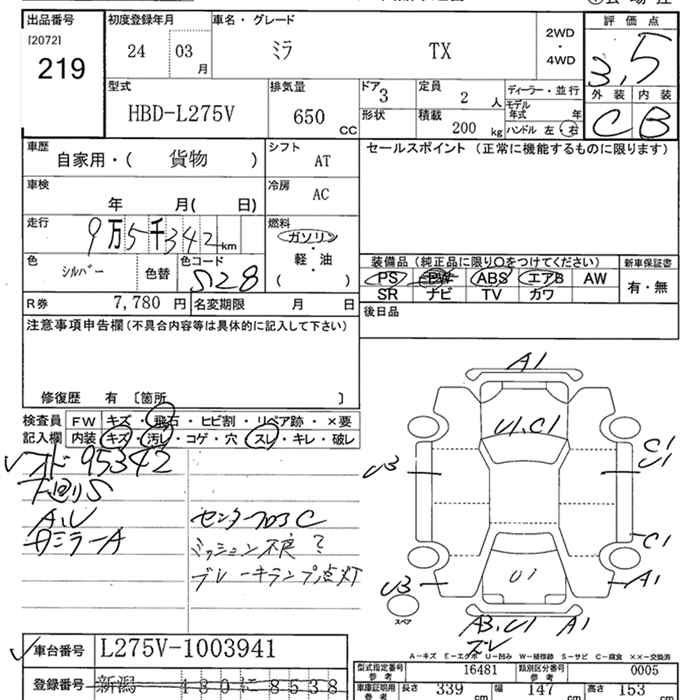 出品番号 初度登録年月 車名・グレード 評価点
[2072] 2WD
219 24 03月 ミラ TX ・ 3.5
4WD
型式 排気量 ドア 3 定員 2 人 ディーラー・並行 外装 内装
HBD-L275V 650 CC 形状 積載 200 kg モデル年式 年 C B
ハンドル 左・右
車歴 自家用・( 貨物 ) シフト AT セールスポイント (正常に機能するものに限ります)
車検 年 月( 日) 冷房 AC
走行 9万5千342km 燃料 ガソリン
・
軽・油
( )
色 シルバー 色替 色コード S28
装備品 (純正品に限り〇をつけてください) 新車保証書
PS PW ABS エアB AW 有・無
SR ナビ TV カワ
R券 7,780 円 名変期限 月 日
後日品
注意事項申告欄(不具合内容等は具体的に記入して下さい)
修復歴 有 〔箇所 〕
検査員 FW キズ・飛石・ヒビ割・リペア跡・×要
記入欄 内装 キズ・汚レ・コゲ・穴・スレ・キレ・破レ
95342
下回りS
A.U センターフロアC
ミラーA ミッション不良?
ブレーキランプ点灯
A1
U1.C1
U3 C1
U1
C1
U1
U3 A1
スペア
A3.U1 A1
A-キズ E-エクボ U-凹み W-補修跡 S-サビ C-腐食 ××-交換済
車台番号 L275V-1003941
型式指定番号 参考 16481 類別区分番号 参考 0005
登録番号 新潟 480に8538
車庫証明用 参考 長さ 339 cm 幅 147 cm 高さ 153 cm